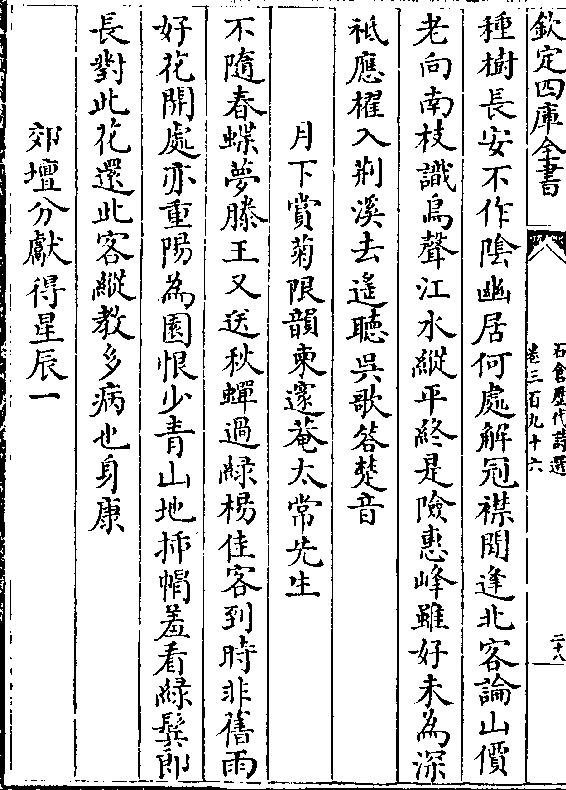 欽定四庫全書
石倉歷代詩選
卷三百九十六
二十八
種樹長安不作陰幽居何處解冠襟閒逢北客論山價
老向南枝識鳥聲江水縱平終是險惠峰雖好未為深
祗應櫂入荆溪去遙聽吳歌答楚音
月下賞菊限韻柬邃菴太常先生
不隨春蝶夢滕王又送秋蟬過綠楊佳客到時非舊雨
好花開處亦重陽為園恨少青山地揷帽羞看綠鬂郎
長對此花還此客縱教多病也身康
郊壇分獻得星辰一